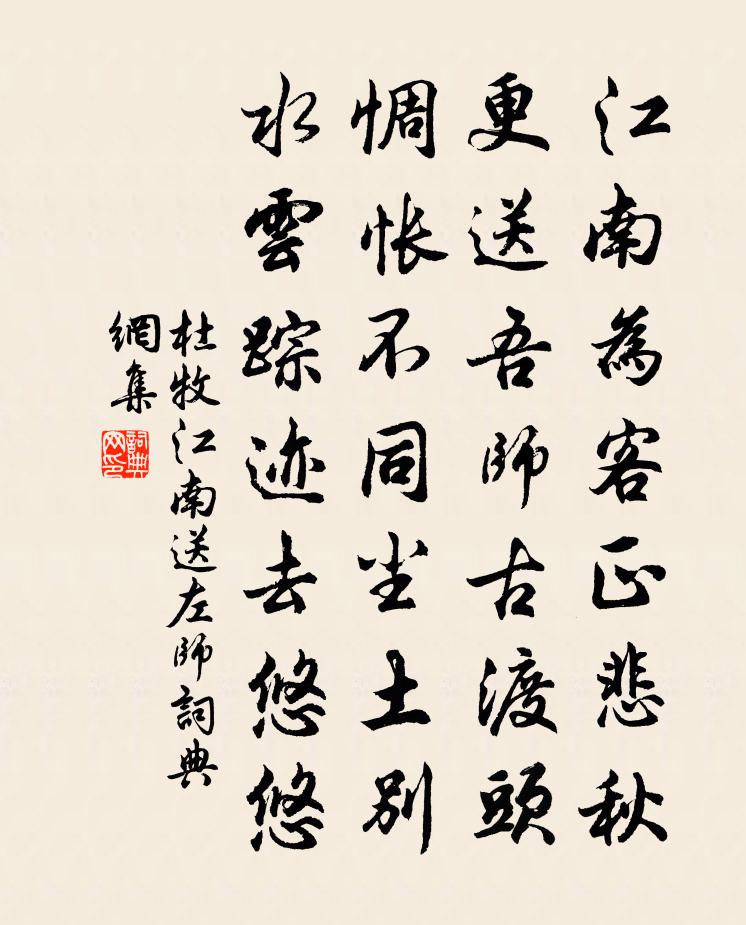 江南為客正悲秋
更送吾師古渡頭
惆悵不同尘土别
水雲踪迹去悠悠
杜牧江南送左師詞典
網集
詞典網印